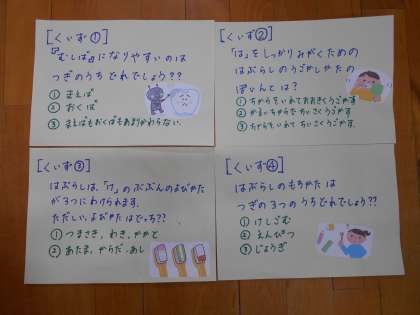 [くいず①]
『むしば』になりやすいのは
つぎのうちどれでしょう??
① まえば
② おくば
③ まえばもおくばもあまりかわらない。
[くいず②]
「は」をしっかりみがくための
はぶらしのうごかしかたの
ぽいんとは?
① ちからをいれておおきくうごかす
② かるいちからでちいさくうごかす
③ ちからをいれてちいさくうごかす
[くいず③]
はぶらしは、「け」のぶぶんのよびかた
が3つにわけられます。
ただしい、よびかたはどっち??
① つまさき、わき、かかと
② あたま、からだ、あし
[くいず④]
はぶらしのもちかたは
つぎの3つのうちどれでしょう??
① けしごむ
② えんぴつ
③ じょうぎ